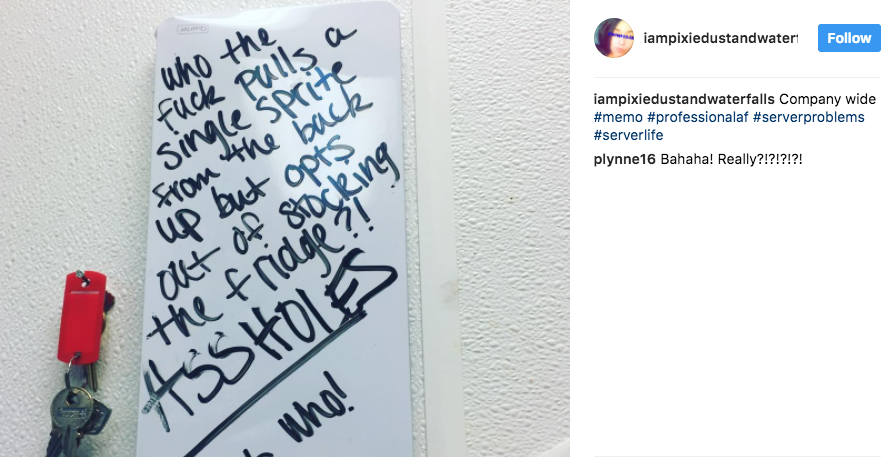 who the
fuck pulls a
single sprite
from the back
up but opts
out of stocking
the fridge?!
ASSHOLES
who!
iampixiedustandwaterf
Follow
iampixiedustandwaterfalls Company wide
#memo #professionalaf #serverproblems
#serverlife
plynne16 Bahaha! Really?!?!?!?!